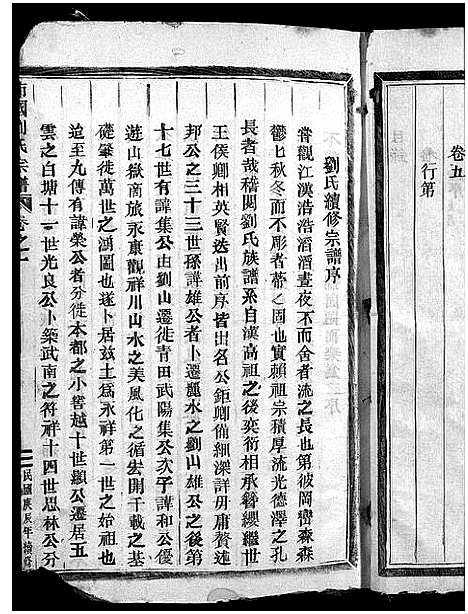 卷五
行第
劉氏續修宗譜序
嘗觀江漢浩浩滔滔晝夜不而舍者流之長也第彼岡巒森森
鬱七秋冬而不彫者蒂之固也實賴祖宗積厚流光德澤之孔
長者哉稽閱劉氏族譜系自漢高祖之後奕衍相承簪纓繼世
王侯卿相英賢迭出前序皆出名公鉅卿仙細深詳毋庸贅述
邦公之三十三世孫諱雄公者卜遷麗水之劉山雄公之後第
十七世有諱集公由劉山遷徙青田武陽集公次子諱和公優
遊山嶽南旅永康觀祥川山水之美風化之循宏開千載之基
礎肇徙萬世之鴻圖也遂卜居玆土為永祥第一世之始祖也
迨至九傳有諱榮公者分徙本都之小窖越十世顯公遷居五
雲之白塘十一世光良公卜築武南之符祥十四世思林公分
國劉氏宗譜
卷之一
民國庚辰年續修